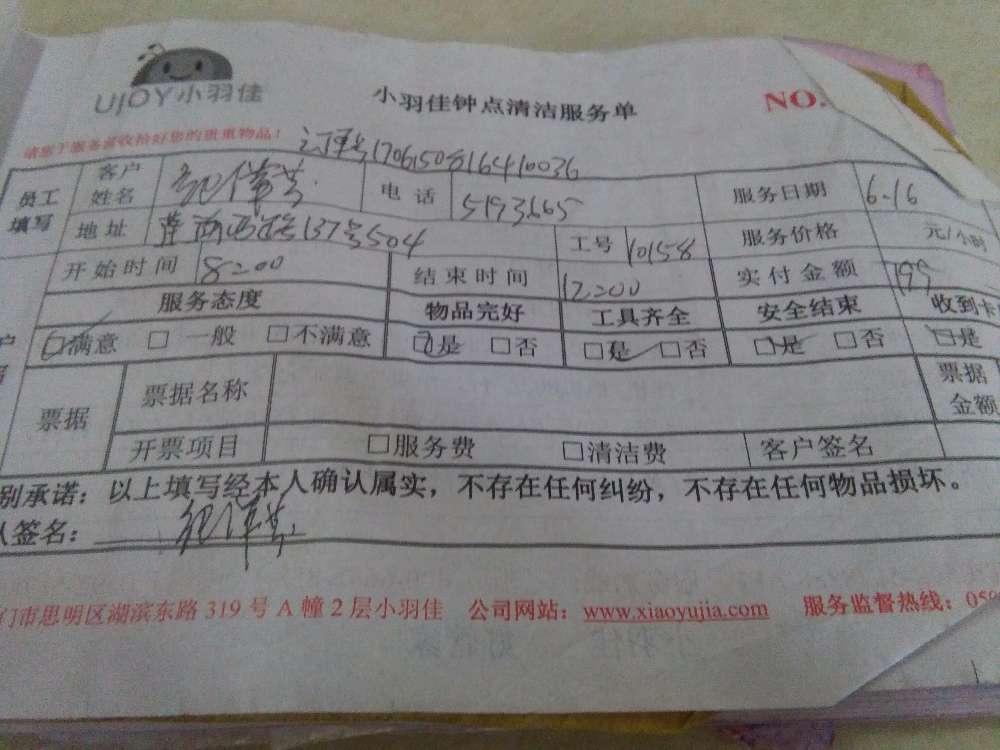 UJOY小羽佳
小羽佳钟点清洁服务单
NO.
请您于服务前收拾好您的贵重物品！
订单号17061508164410036
员工填写 客户姓名 电话 5193665 服务日期 6-16
地址 137号504 工号 10158 服务价格 元/小时
开始时间 8:00 结束时间 12:00 实付金额 199
服务态度 物品完好 工具齐全 安全结束 收到卡
□满意 □一般 □不满意 □是 □否 □是 □否 □是 □否 □是
票据 票据名称 票据金额
开票项目 □服务费 □清洁费 客户签名
别承诺：以上填写经本人确认属实，不存在任何纠纷，不存在任何物品损坏。
签名：
门市思明区湖滨东路 319 号 A 幢 2 层小羽佳 公司网站：www.xiaoyujia.com 服务监督热线：059